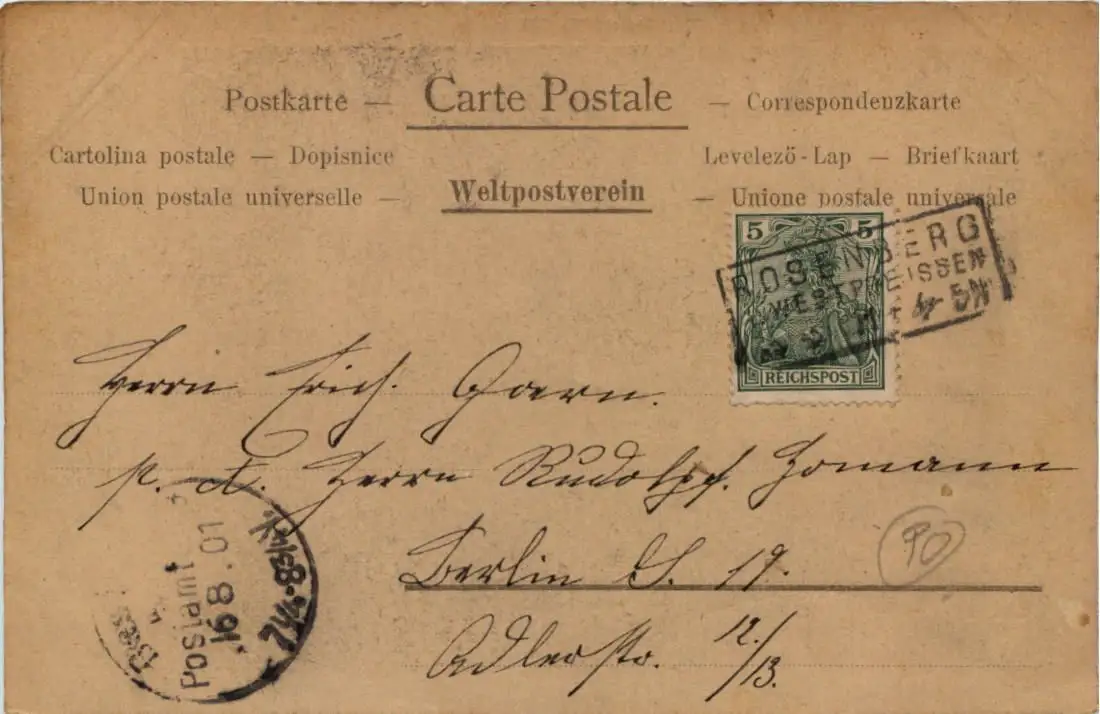 Postkarte — Carte Postale — Correspondenzkarte
Cartolina postale — Dopisnice
Levelező-Lap — Briefkaart
Union postale universelle — Weltpostverein — Unione postale universale
5 5
ROSENBERG
WESTPREUSSEN
4-5N
REICHSPOST
Herrn Erich Gaern.
p. A. Herrn Rudolph Homann
Berlin S. 19.
Adlerstr. 12./13.
Postamt
16 8. 01
7¼-8½V.
PO